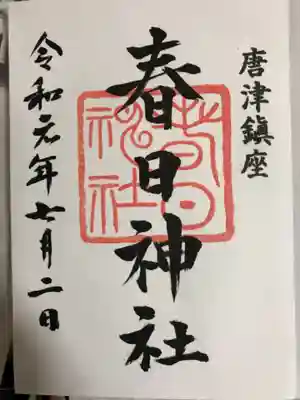 唐津鎮座
春日神社
春日
神社
令和元年七月二日